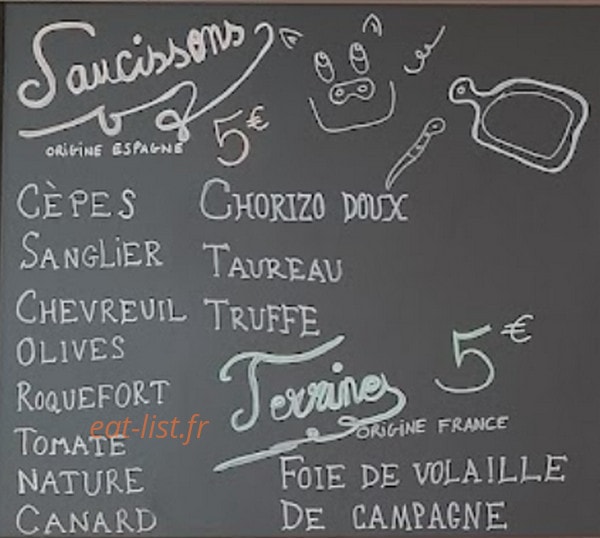 Saucissons
ORIGINE ESPAGNE
5€
CÈPES
SANGLIER
CHEVREUIL
OLIVES
ROQUEFORT
TOMATE
NATURE
CANARD
CHORIZO DOUX
TAUREAU
TRUFFE
Terrines
5€
ORIGINE FRANCE
FOIE DE VOLAILLE
DE CAMPAGNE
eat-list.fr